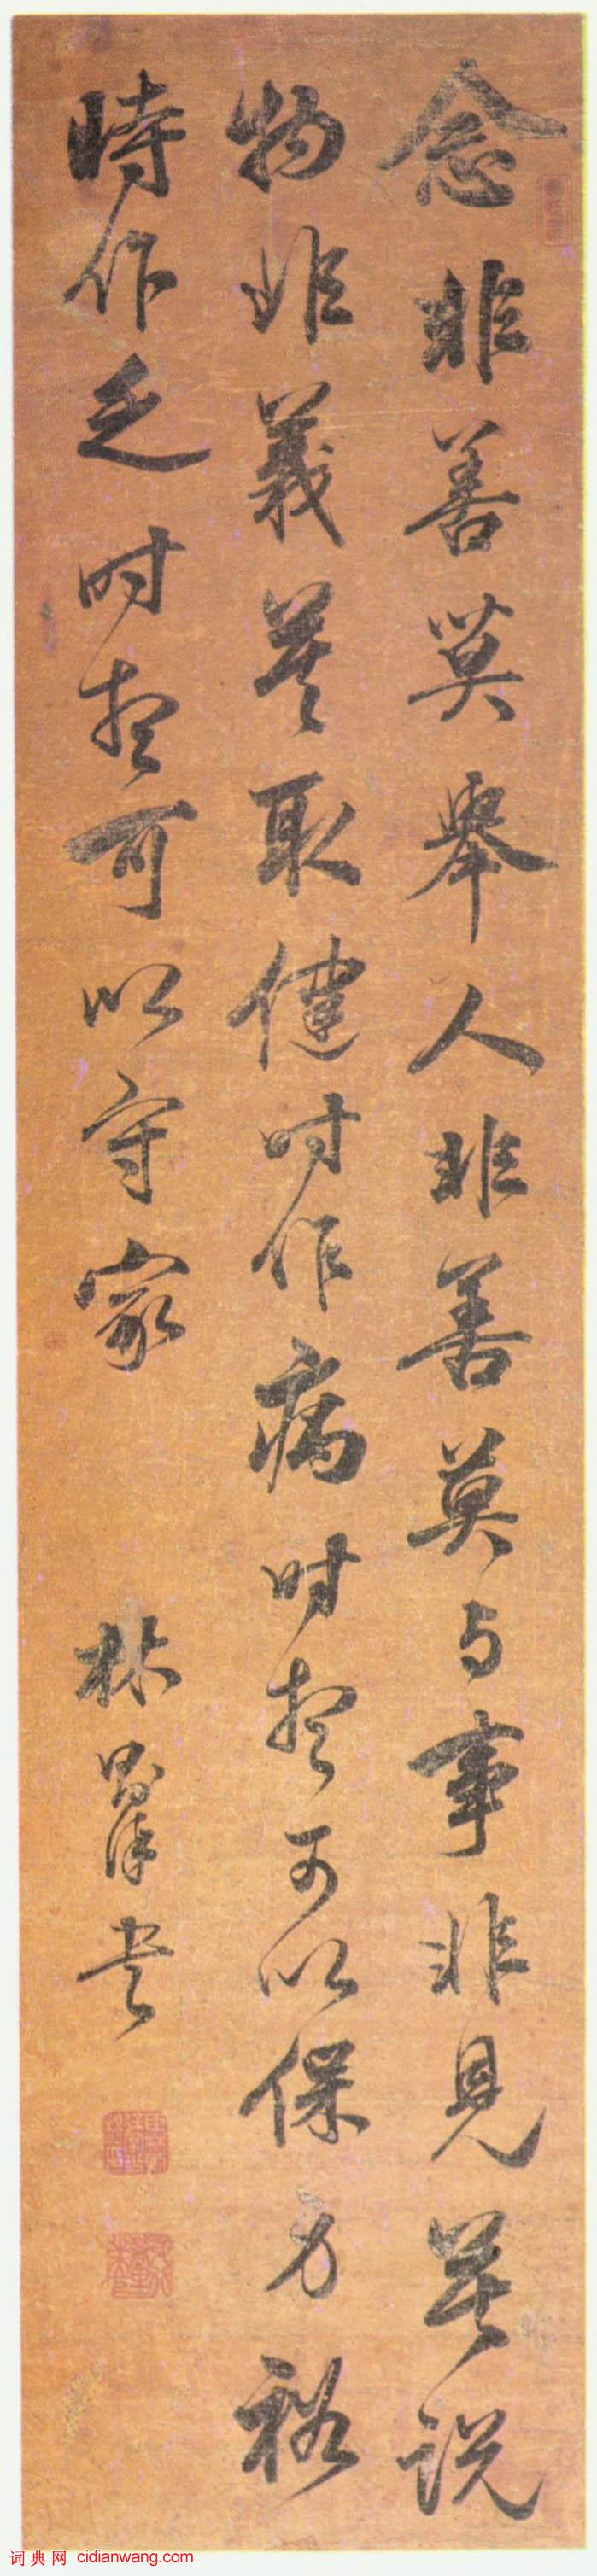 念非善莫舉人非善莫与事非見莫說
物非義莫取健时作病时想可以保身裕
時作乏时想可以守家
林皋書
词典网 cidianwang.com